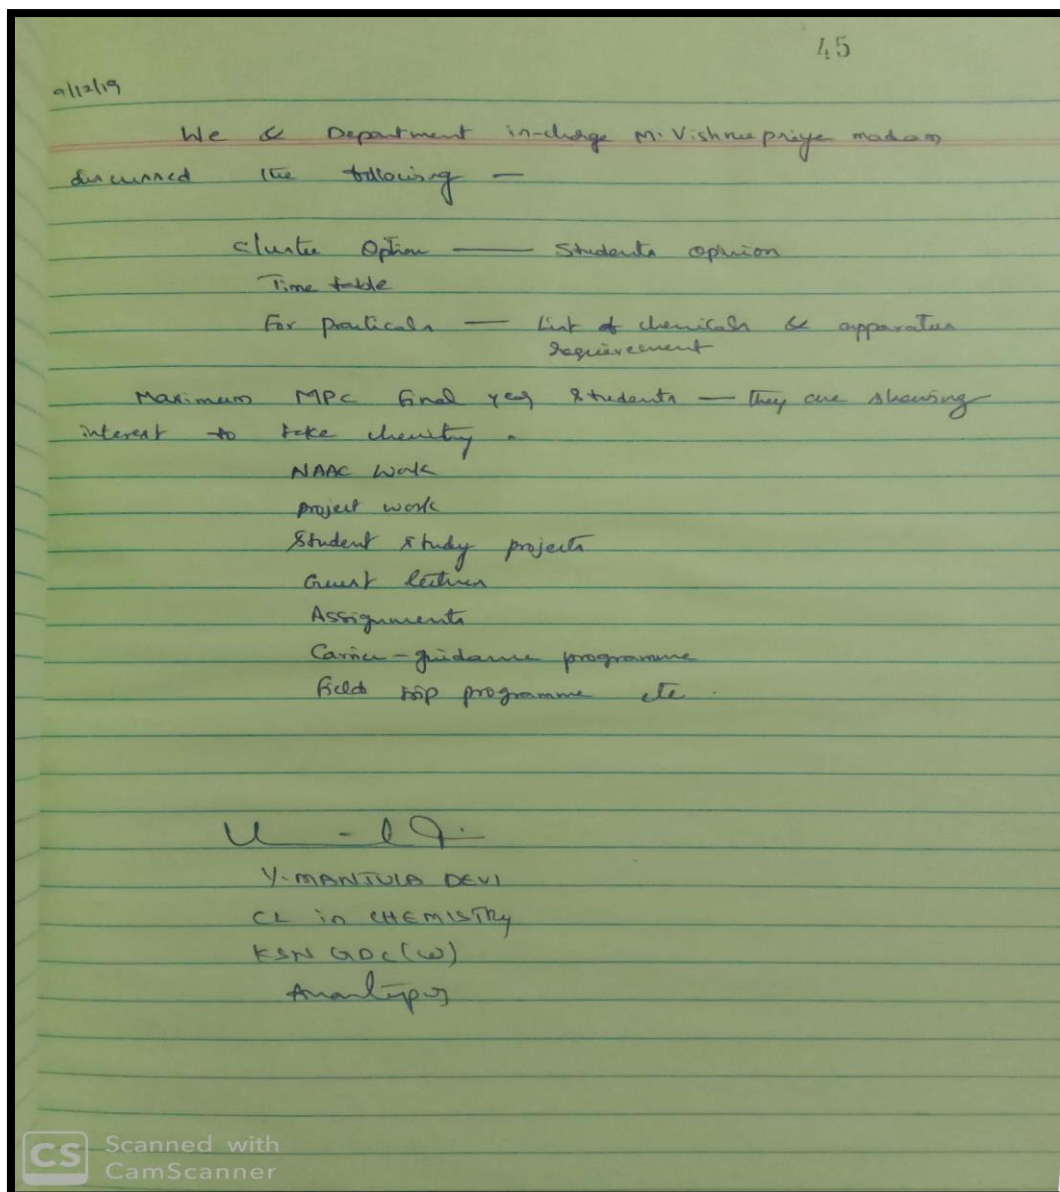 45
9/12/19
We & Department in-charge M. Vishnupriya madam
discussed the following —
Cluster Option —— Students opinion
Time table
For practicals — List of chemicals & apparatus
requirement
Maximum MPC final year students — they are showing
interest to take chemistry.
NAAC Work
project work
Student study projects
Guest lectures
Assignments
Carrier-guidance programme
field trip programme etc.
Y. MANJULA DEVI
CL in CHEMISTRY
KSN GDC(W)
Anantapur
CS Scanned with
CamScanner